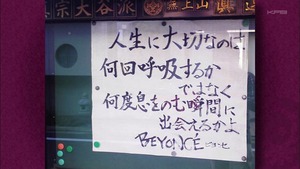 宗大谷派
上山
人生に大切なのは
何回呼吸するか
ではなく
何度息をのむ瞬間に
出会えるかよ
BEYONCÉ
ビヨンセ